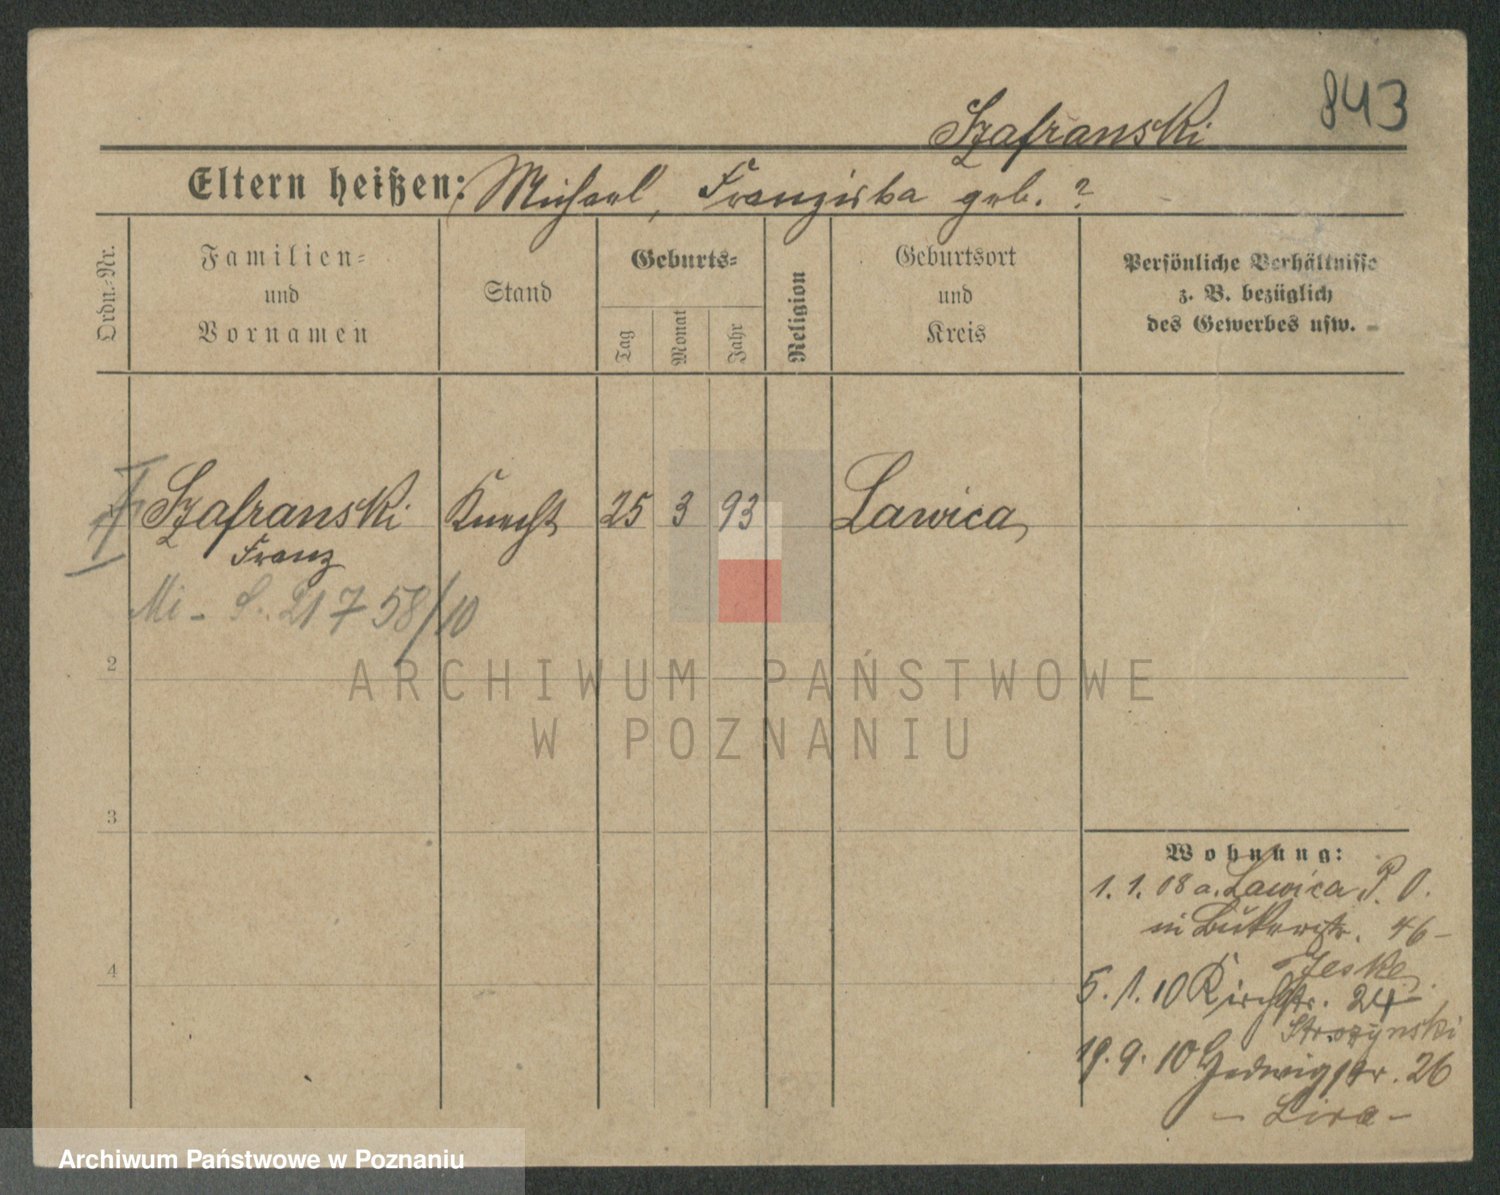 843
Szafranski
Eltern heißen: Michael, Franziska geb. ?
Ordn.-Nr.
Familien-
und
Vornamen
Stand
Geburts-
Tag
Monat
Jahr
Religion
Geburtsort
und
Kreis
Persönliche Verhältnisse
z. B. bezüglich
des Gewerbes usw.
Szafranski Knecht 25 3 93 Lawica
Franz
Mi - S. 21 7 58/10
2
3
4
Wohnung:
1. 1. 08 a. Lawica P. O.
in Bukerstr. 46 -
Jeske
5. 1. 10 Kirchstr. 24
Strozynski
19. 9. 10 Hedwigstr. 26
- Lira -
ARCHIWUM PAŃSTWOWE
W POZNANIU
Archiwum Państwowe w Poznaniu